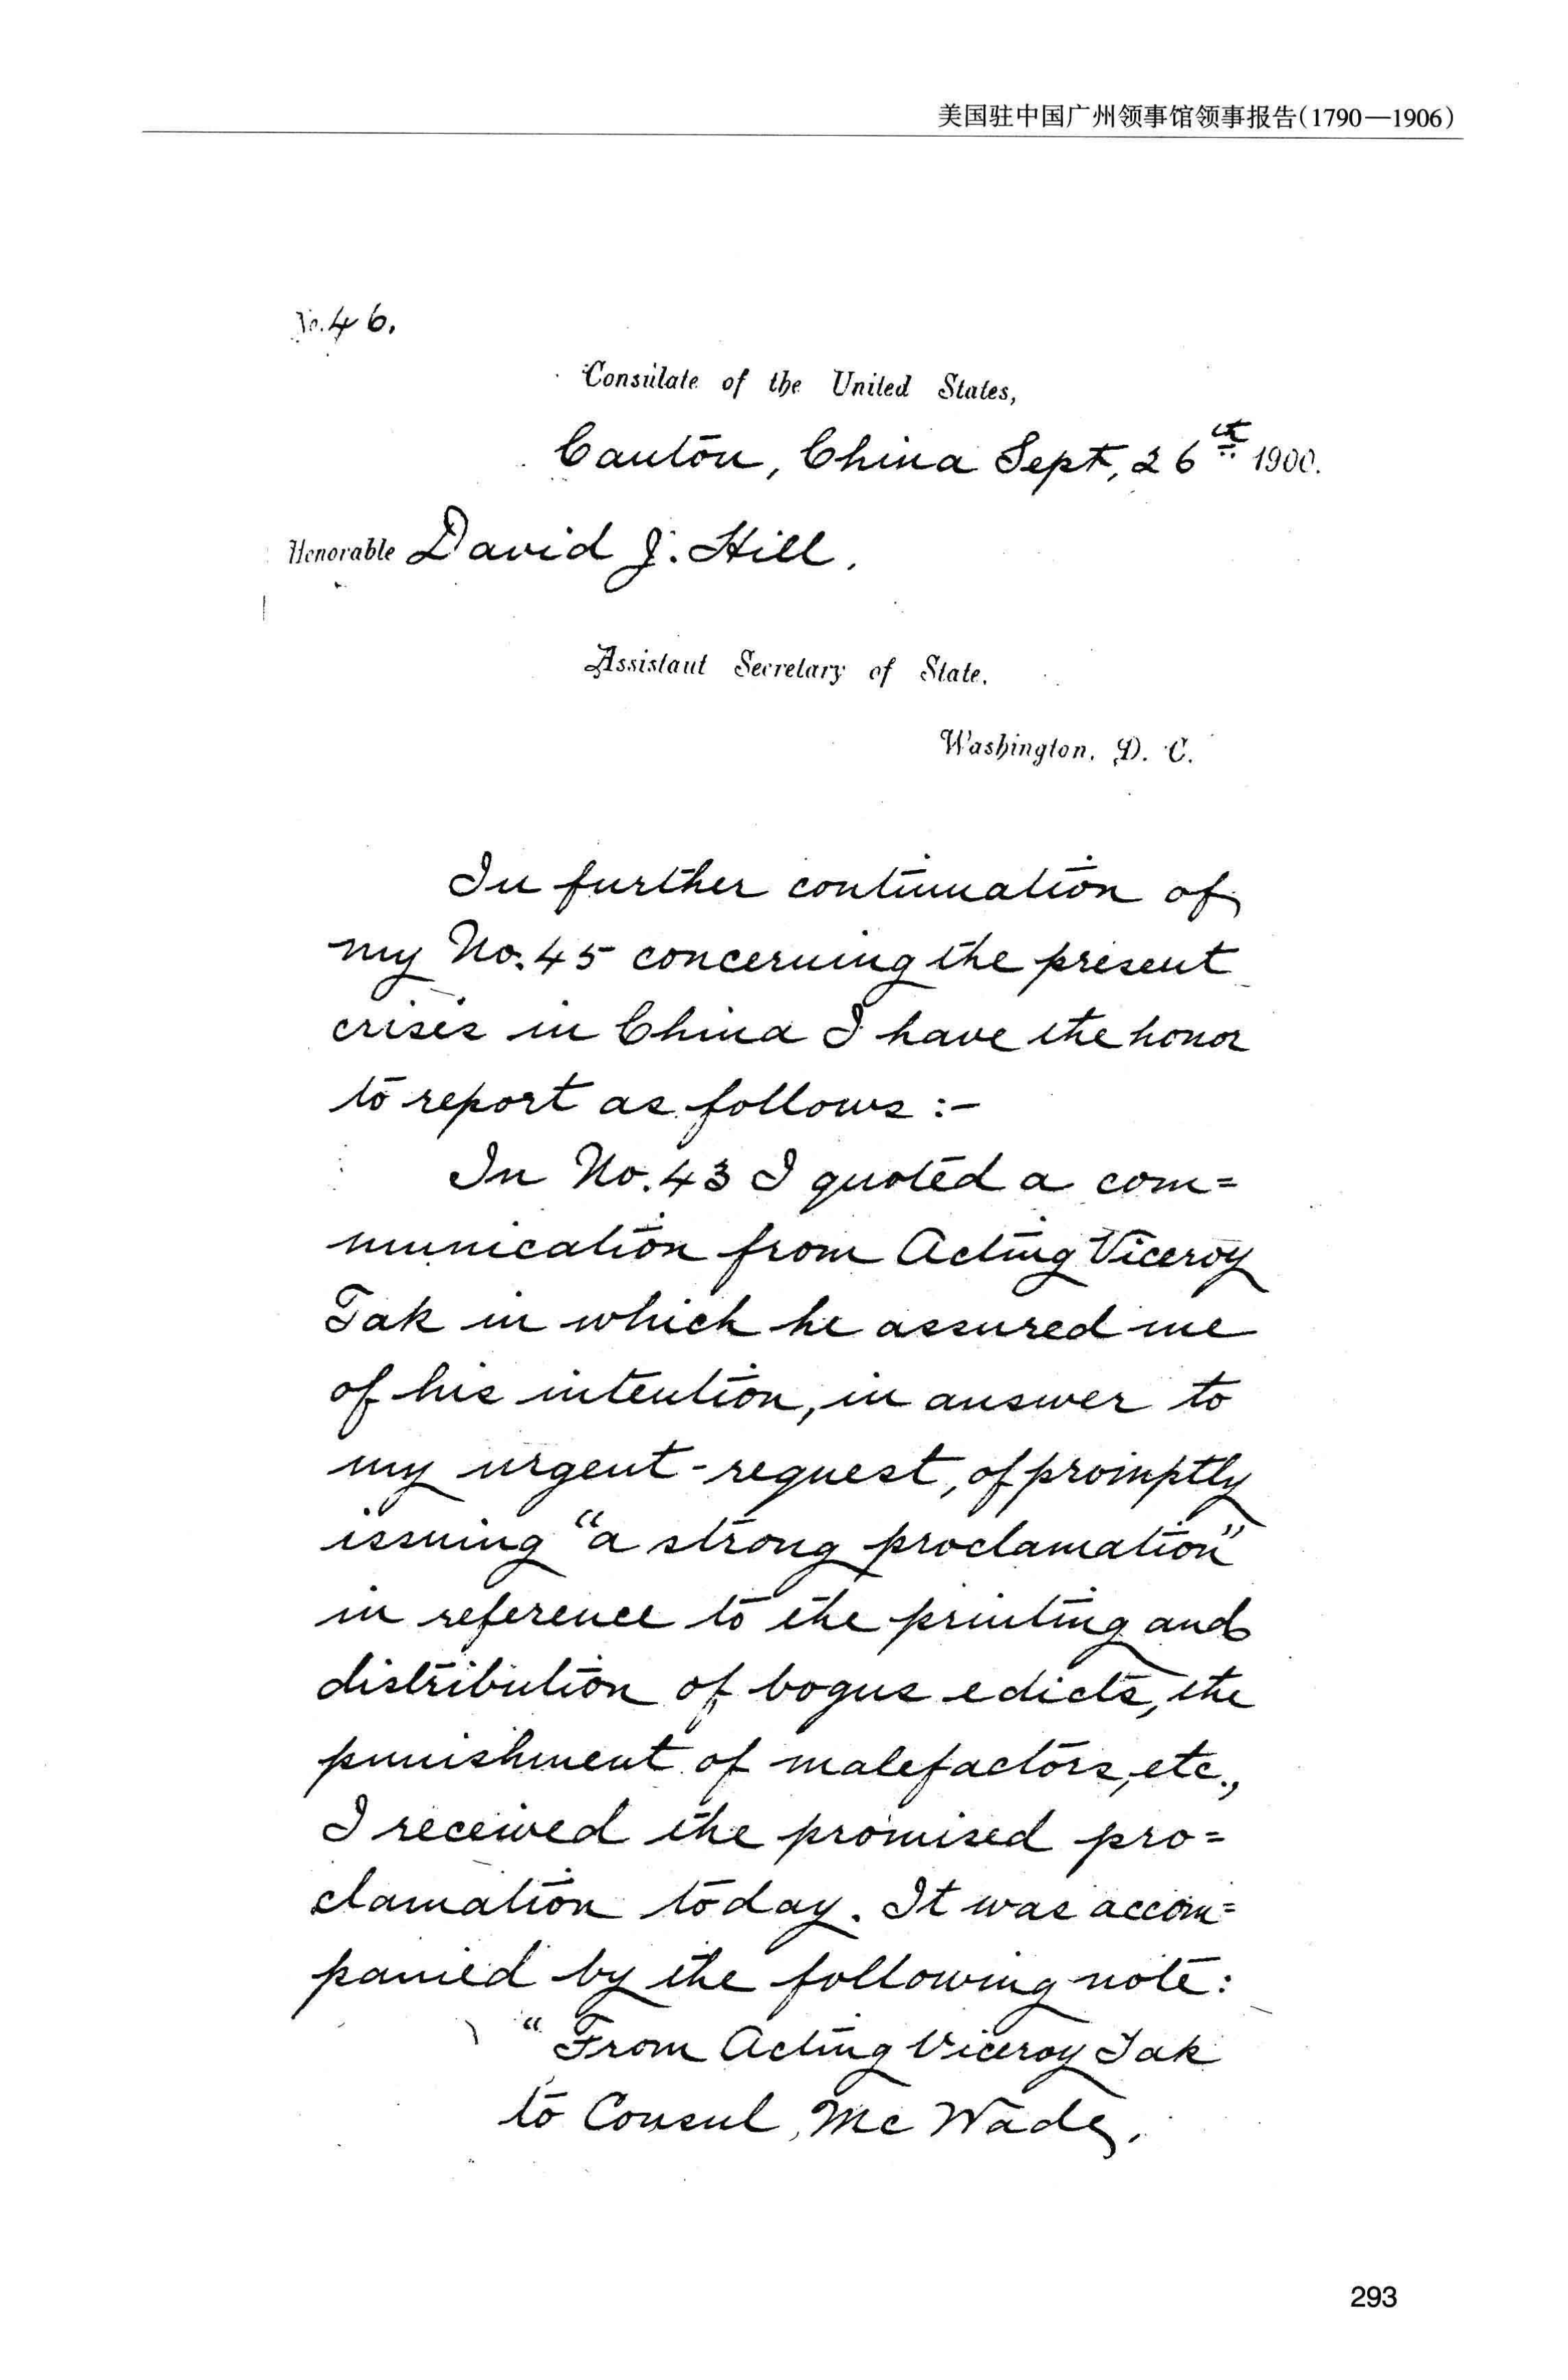 美国驻中国广州领事馆领事报告(1790—1906)
No. 46.
Consulate of the United States,
Canton, China Sept, 26th 1900.
Honorable David J. Hill,
Assistant Secretary of State,
Washington, D. C.
In further continuation of
my No. 45 concerning the present
crisis in China I have the honor
to report as follows :-
In No. 43 I quoted a com=
munication from Acting Viceroy
Tak in which he assured me
of his intention, in answer to
my urgent request, of promptly
issuing "a strong proclamation"
in reference to the printing and
distribution of bogus edicts, the
punishment of malefactors, etc.,
I received the promised pro=
clamation today. It was accom=
panied by the following note:
"From Acting Viceroy Tak
to Consul Mc Wade,
293